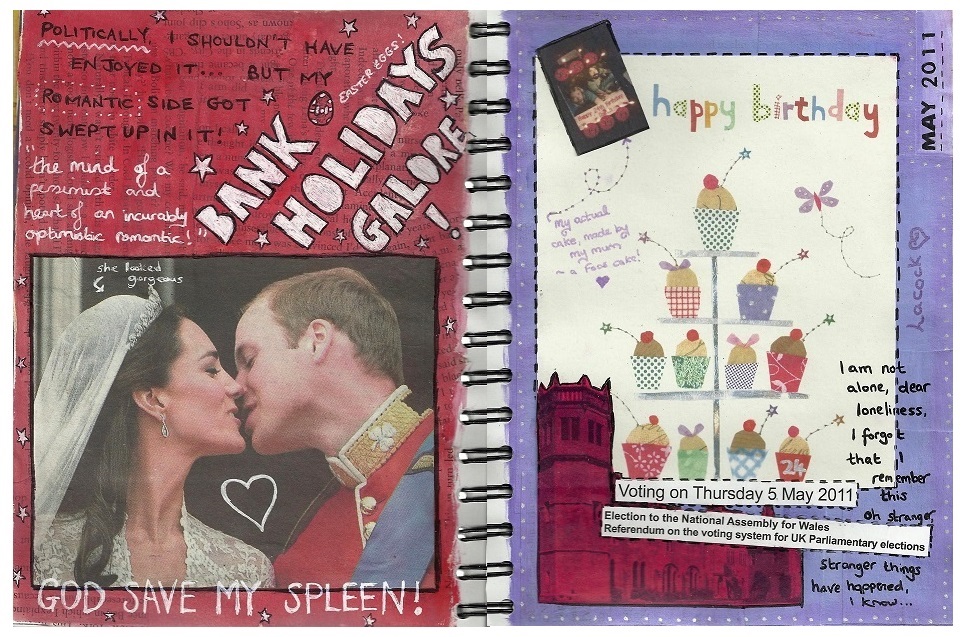 POLITICALLY, I SHOULDN'T HAVE
ENJOYED IT... BUT MY
ROMANTIC SIDE GOT
SWEPT UP IN IT!
EASTER EGGS!
BANK
HOLIDAYS
GALORE
!
"the mind of a
pessimist and
heart of an incurably
optimistic romantic!"
she looked
gorgeous
GOD SAVE MY SPLEEN!
MAY 2011
happy birthday
My actual
cake, made by
my mum
~ a Foox cake!
Lacock
24
I am not
alone, dear
loneliness,
I forgot
that I
remember
this
oh stranger,
stranger things
have happened,
I know...
Voting on Thursday 5 May 2011
Election to the National Assembly for Wales
Referendum on the voting system for UK Parliamentary elections